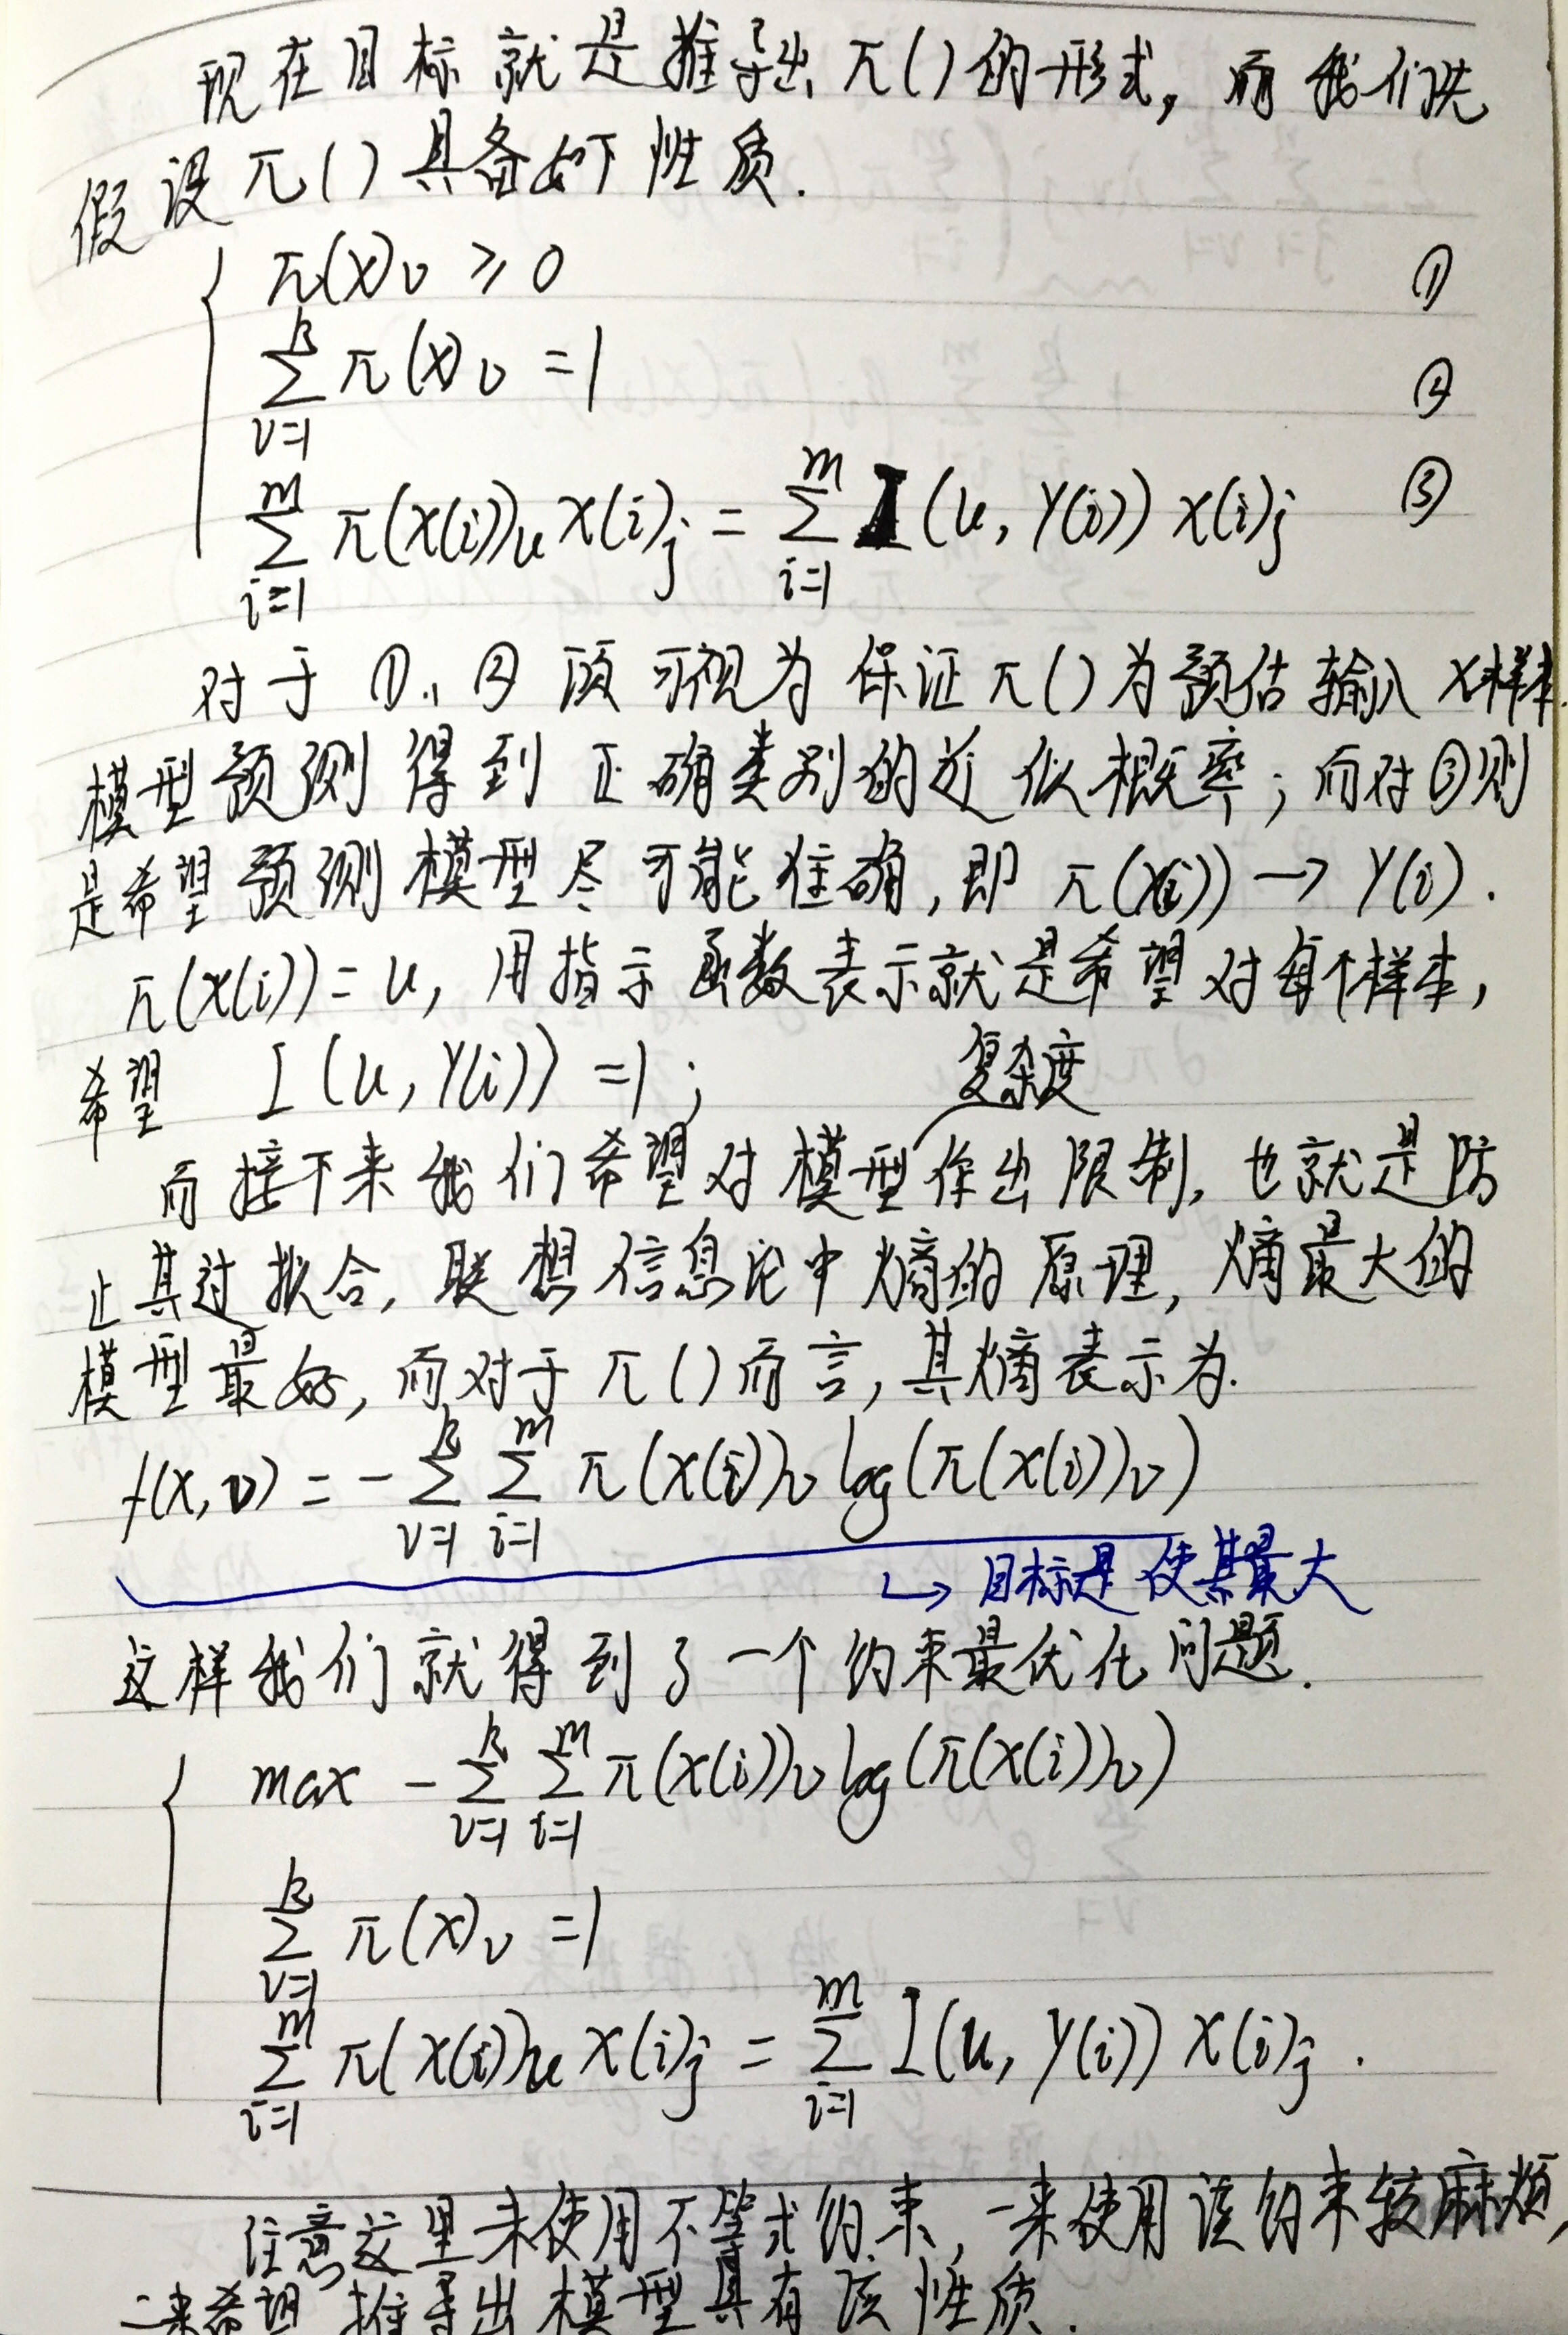 现在目标就是推导出 π( ) 的形式, 而我们先
假设 π( ) 具备如下性质.
π(x)v ≥ 0 ①
∑_{v=1}^{k} π(x)v = 1 ②
∑_{i=1}^{m} π(x(i))u x(i)j = ∑_{i=1}^{m} I(u, y(i)) x(i)j ③
对于 ①、② 项 可视为 保证 π( ) 为预估 输入 x样本
模型预测 得到 正确类别的近似概率; 而对③则
是希望 预测模型尽可能准确, 即 π(x(i)) → y(i).
π(x(i)) = u, 用指示函数表示就是希望对每个样本,
希望 I(u, y(i)) = 1;
复杂度
而接下来我们希望对模型作出限制, 也就是防
止其过拟合, 联想信息论中熵的原理, 熵最大的
模型最好, 而对于 π( ) 而言, 其熵表示为.
f(x, v) = -∑_{v=1}^{k} ∑_{i=1}^{m} π(x(i))v log(π(x(i))v)
↳ 目标是使其最大
这样我们就得到了一个约束最优化问题.
max -∑_{v=1}^{k} ∑_{i=1}^{m} π(x(i))v log(π(x(i))v)
∑_{v=1}^{k} π(x)v = 1
∑_{i=1}^{m} π(x(i))u x(i)j = ∑_{i=1}^{m} I(u, y(i)) x(i)j .
注意这里未使用不等式约束, 一来使用该约束较麻烦,
二来希望 推导出模型具有该性质.